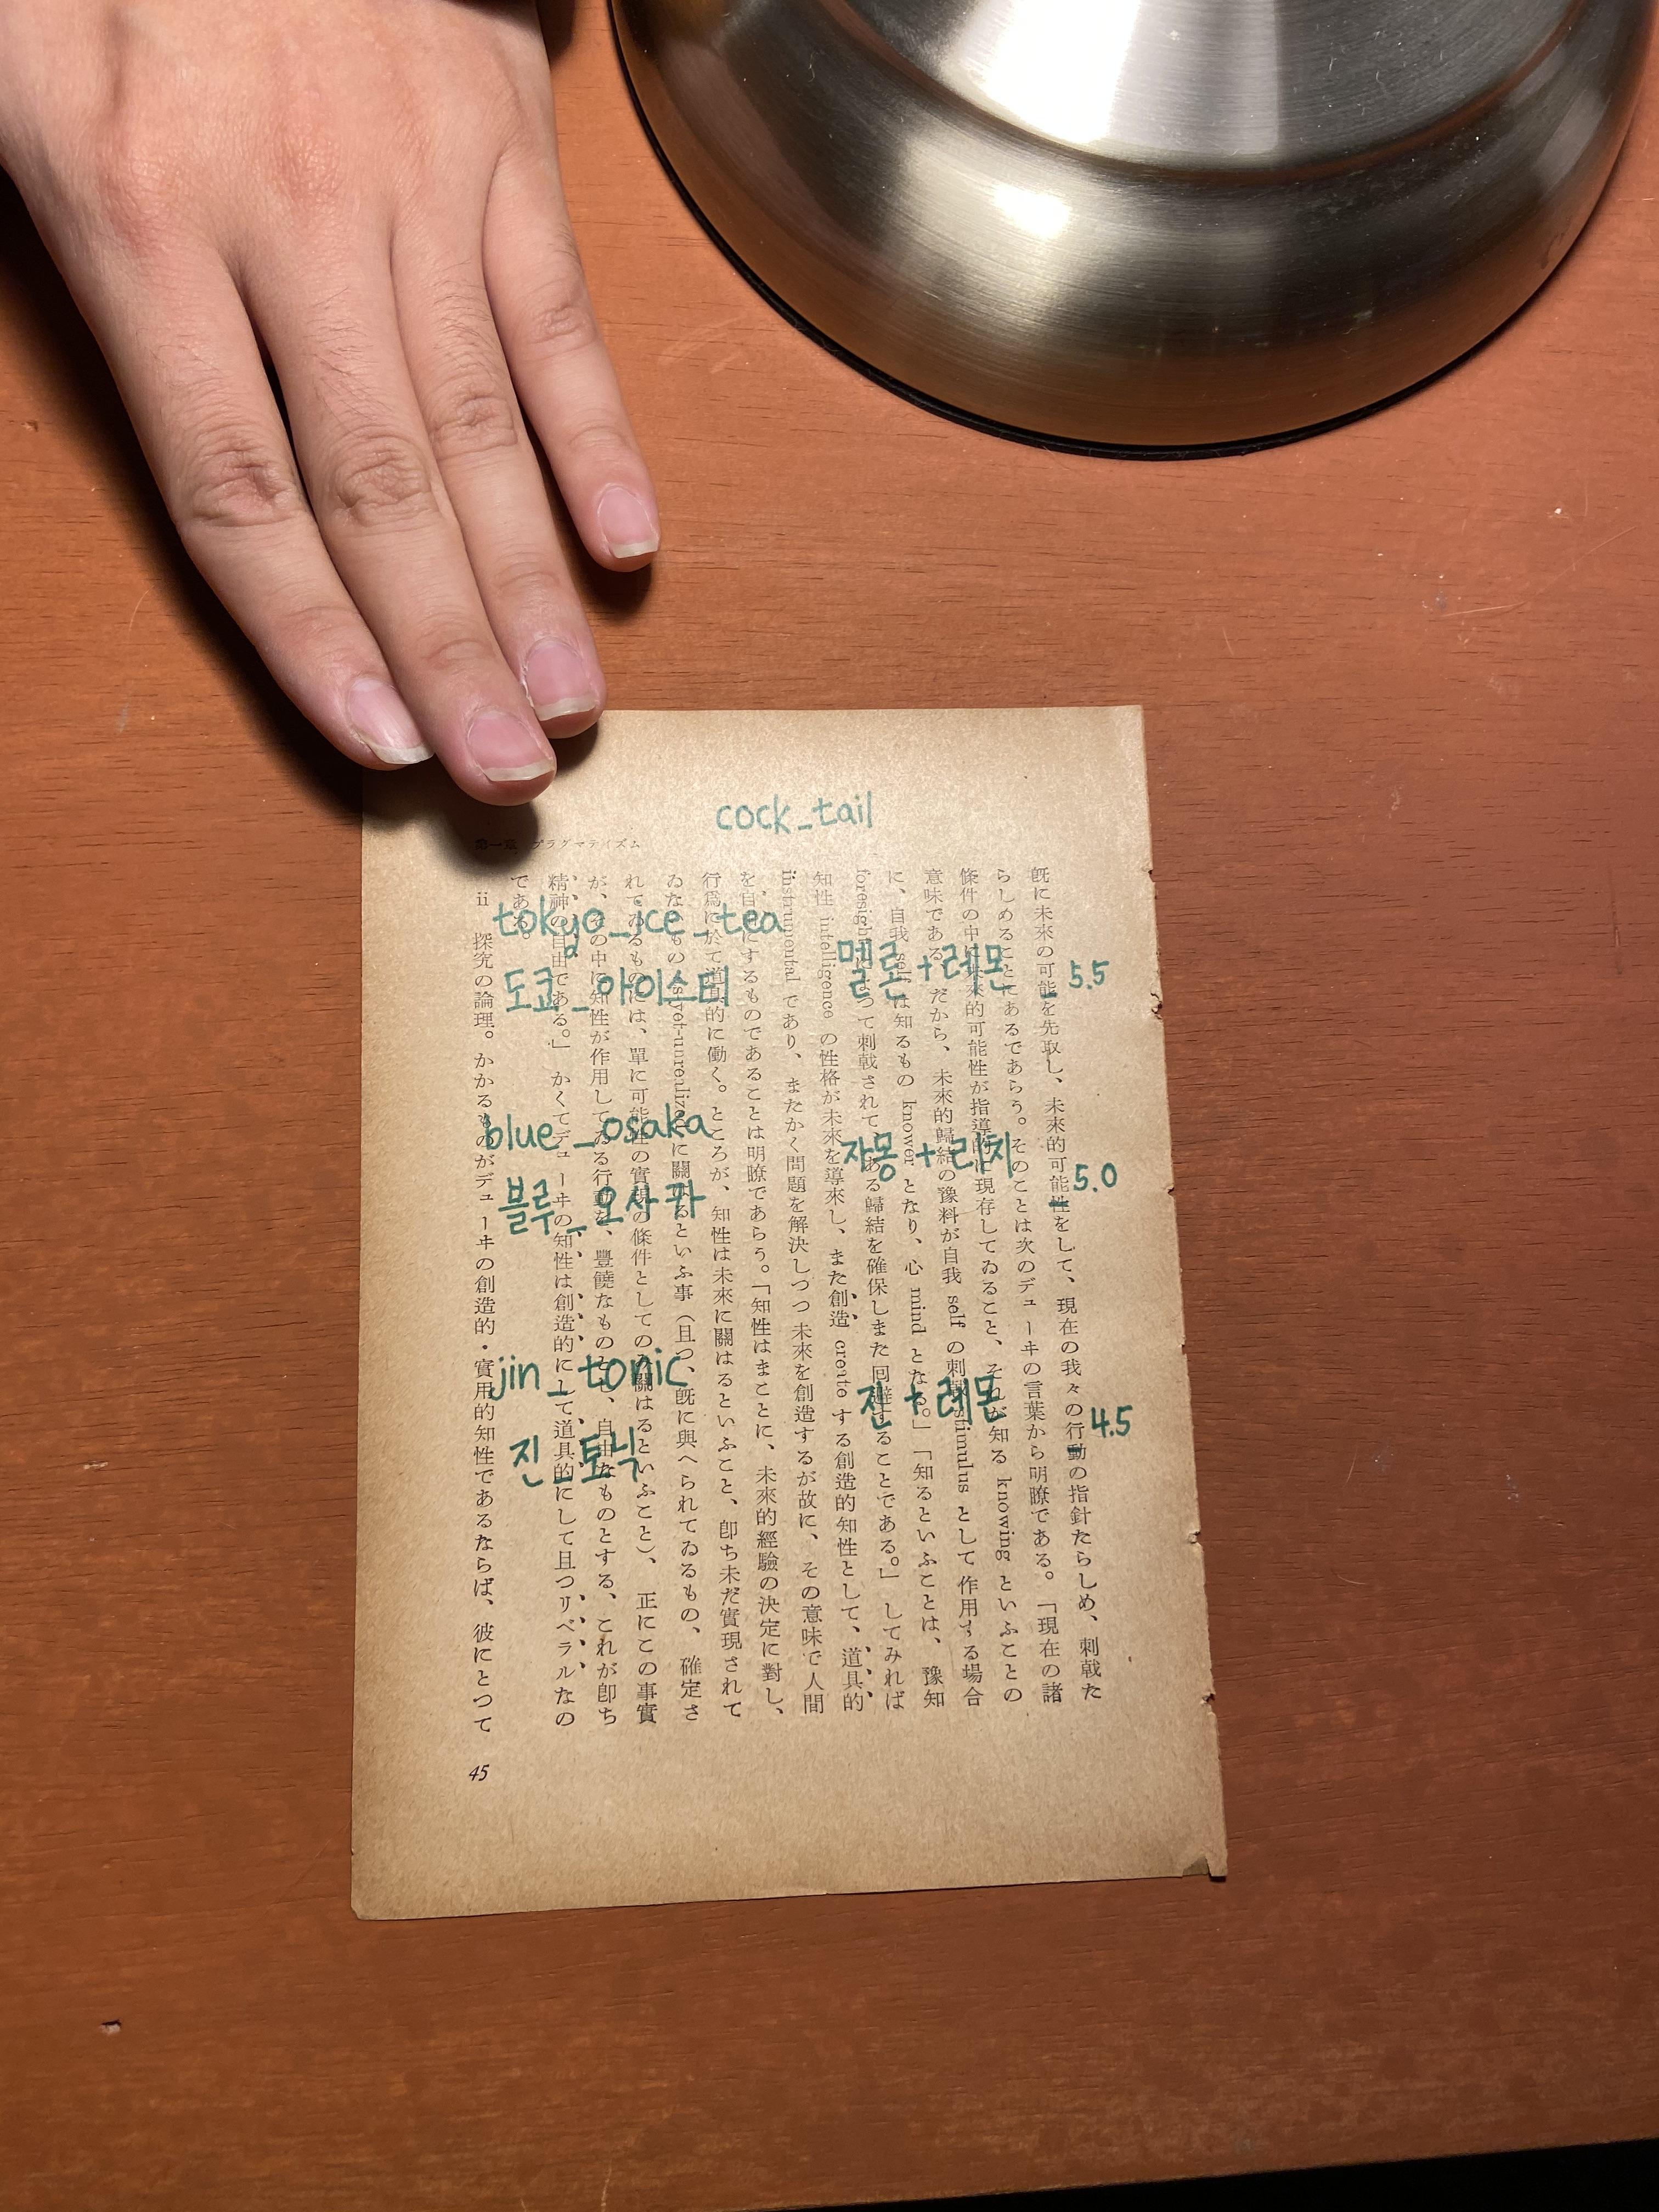 cock_tail
tokyo_ice_tea
도쿄_아이스티
멜론+레몬 _5.5
blue_osaka
블루_오사카
자몽+리치 _5.0
jin_tonic
진_토닉
진+레몬 _4.5
第一章 プラグマティズム
既に未来の可能を先取し、未來的可能性をして、現在の我々の行動の指針たらしめ、刺戟た
らしめることにあるであらう。そのことは次のデューヰの言葉から明瞭である。「現在の諸
條件の中に未來的可能性が指導的に現存してゐること、それが知る knowing といふことの
意味である。だから、未來的歸結の豫料が自我 self の刺戟 stimulus として作用する場合
に、自我 self は知るもの knower となり、心 mind となる。」「知るといふことは、豫知
foresight によつて刺戟されて、ある歸結を確保しまた回避することである。」してみれば
知性 intelligence の性格が未來を導來し、また創造 create する創造的知性として、道具的
instrumental であり、またかく問題を解決しつつ未來を創造するが故に、その意味で人間
を自由にするものであることは明瞭であらう。「知性はまことに、未來的經驗の決定に對し、
行爲に於て道具的に働く。ところが、知性は未來に關はるといふこと、卽ち未だ實現されて
ゐないもの as-yet-unrealized に關はるといふ事（且つ、既に與へられてゐるもの、確定さ
れてゐるものには、單に可能性の實現の條件としてのみ關はるといふこと）、正にこの事實
が、その中に知性が作用してゐる行動を、豐饒なものとし、自由なものとする、これが卽ち
精神の自由である。」かくてデューヰの知性は創造的にして道具的にして且つリベラルなの
である。
ii 探究の論理。かかるものがデューヰの創造的・實用的知性であるならば、彼にとつて
45